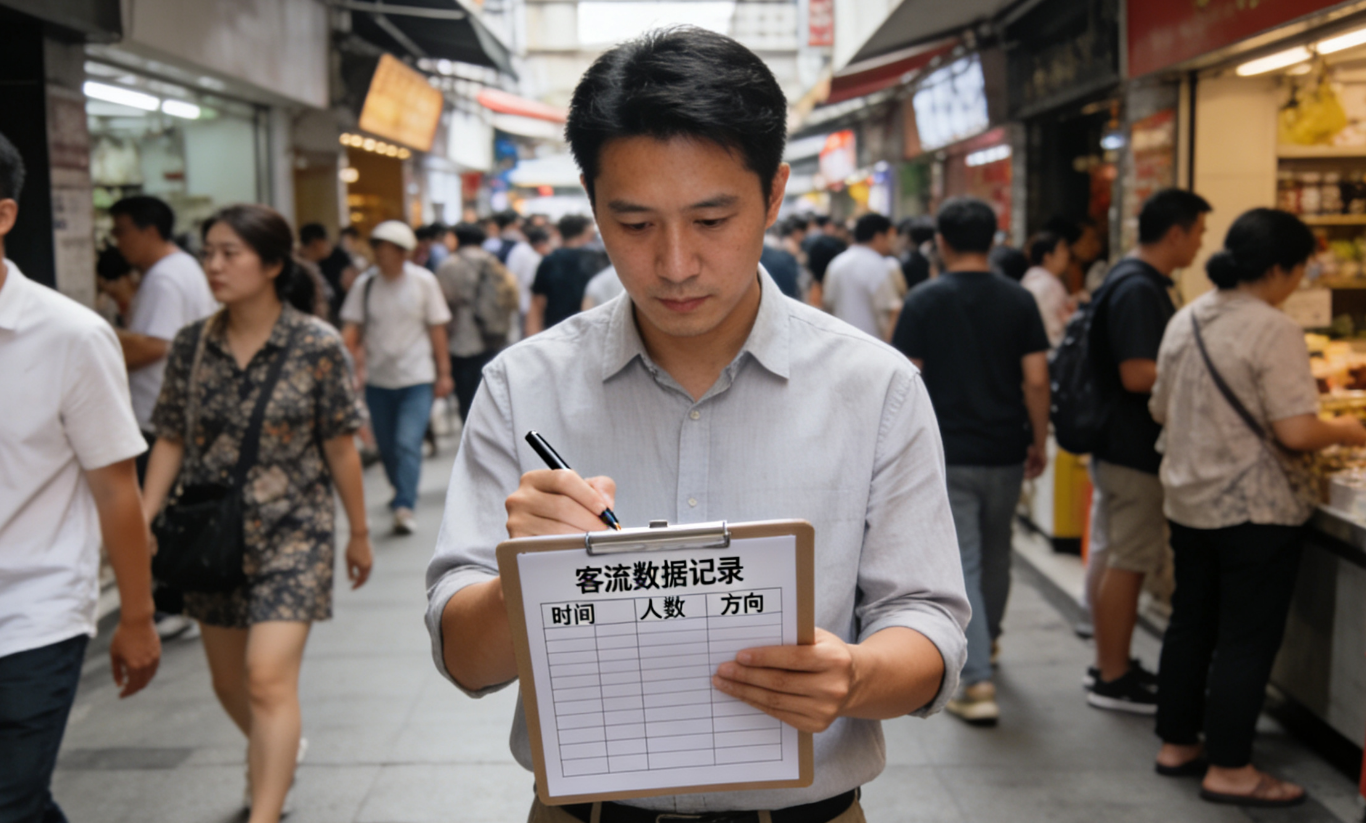 客流数据记录
时间 人数 方向